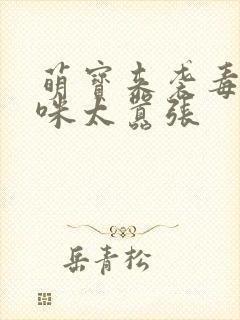 萌寶來襲毒
咪太囂張
岳青松